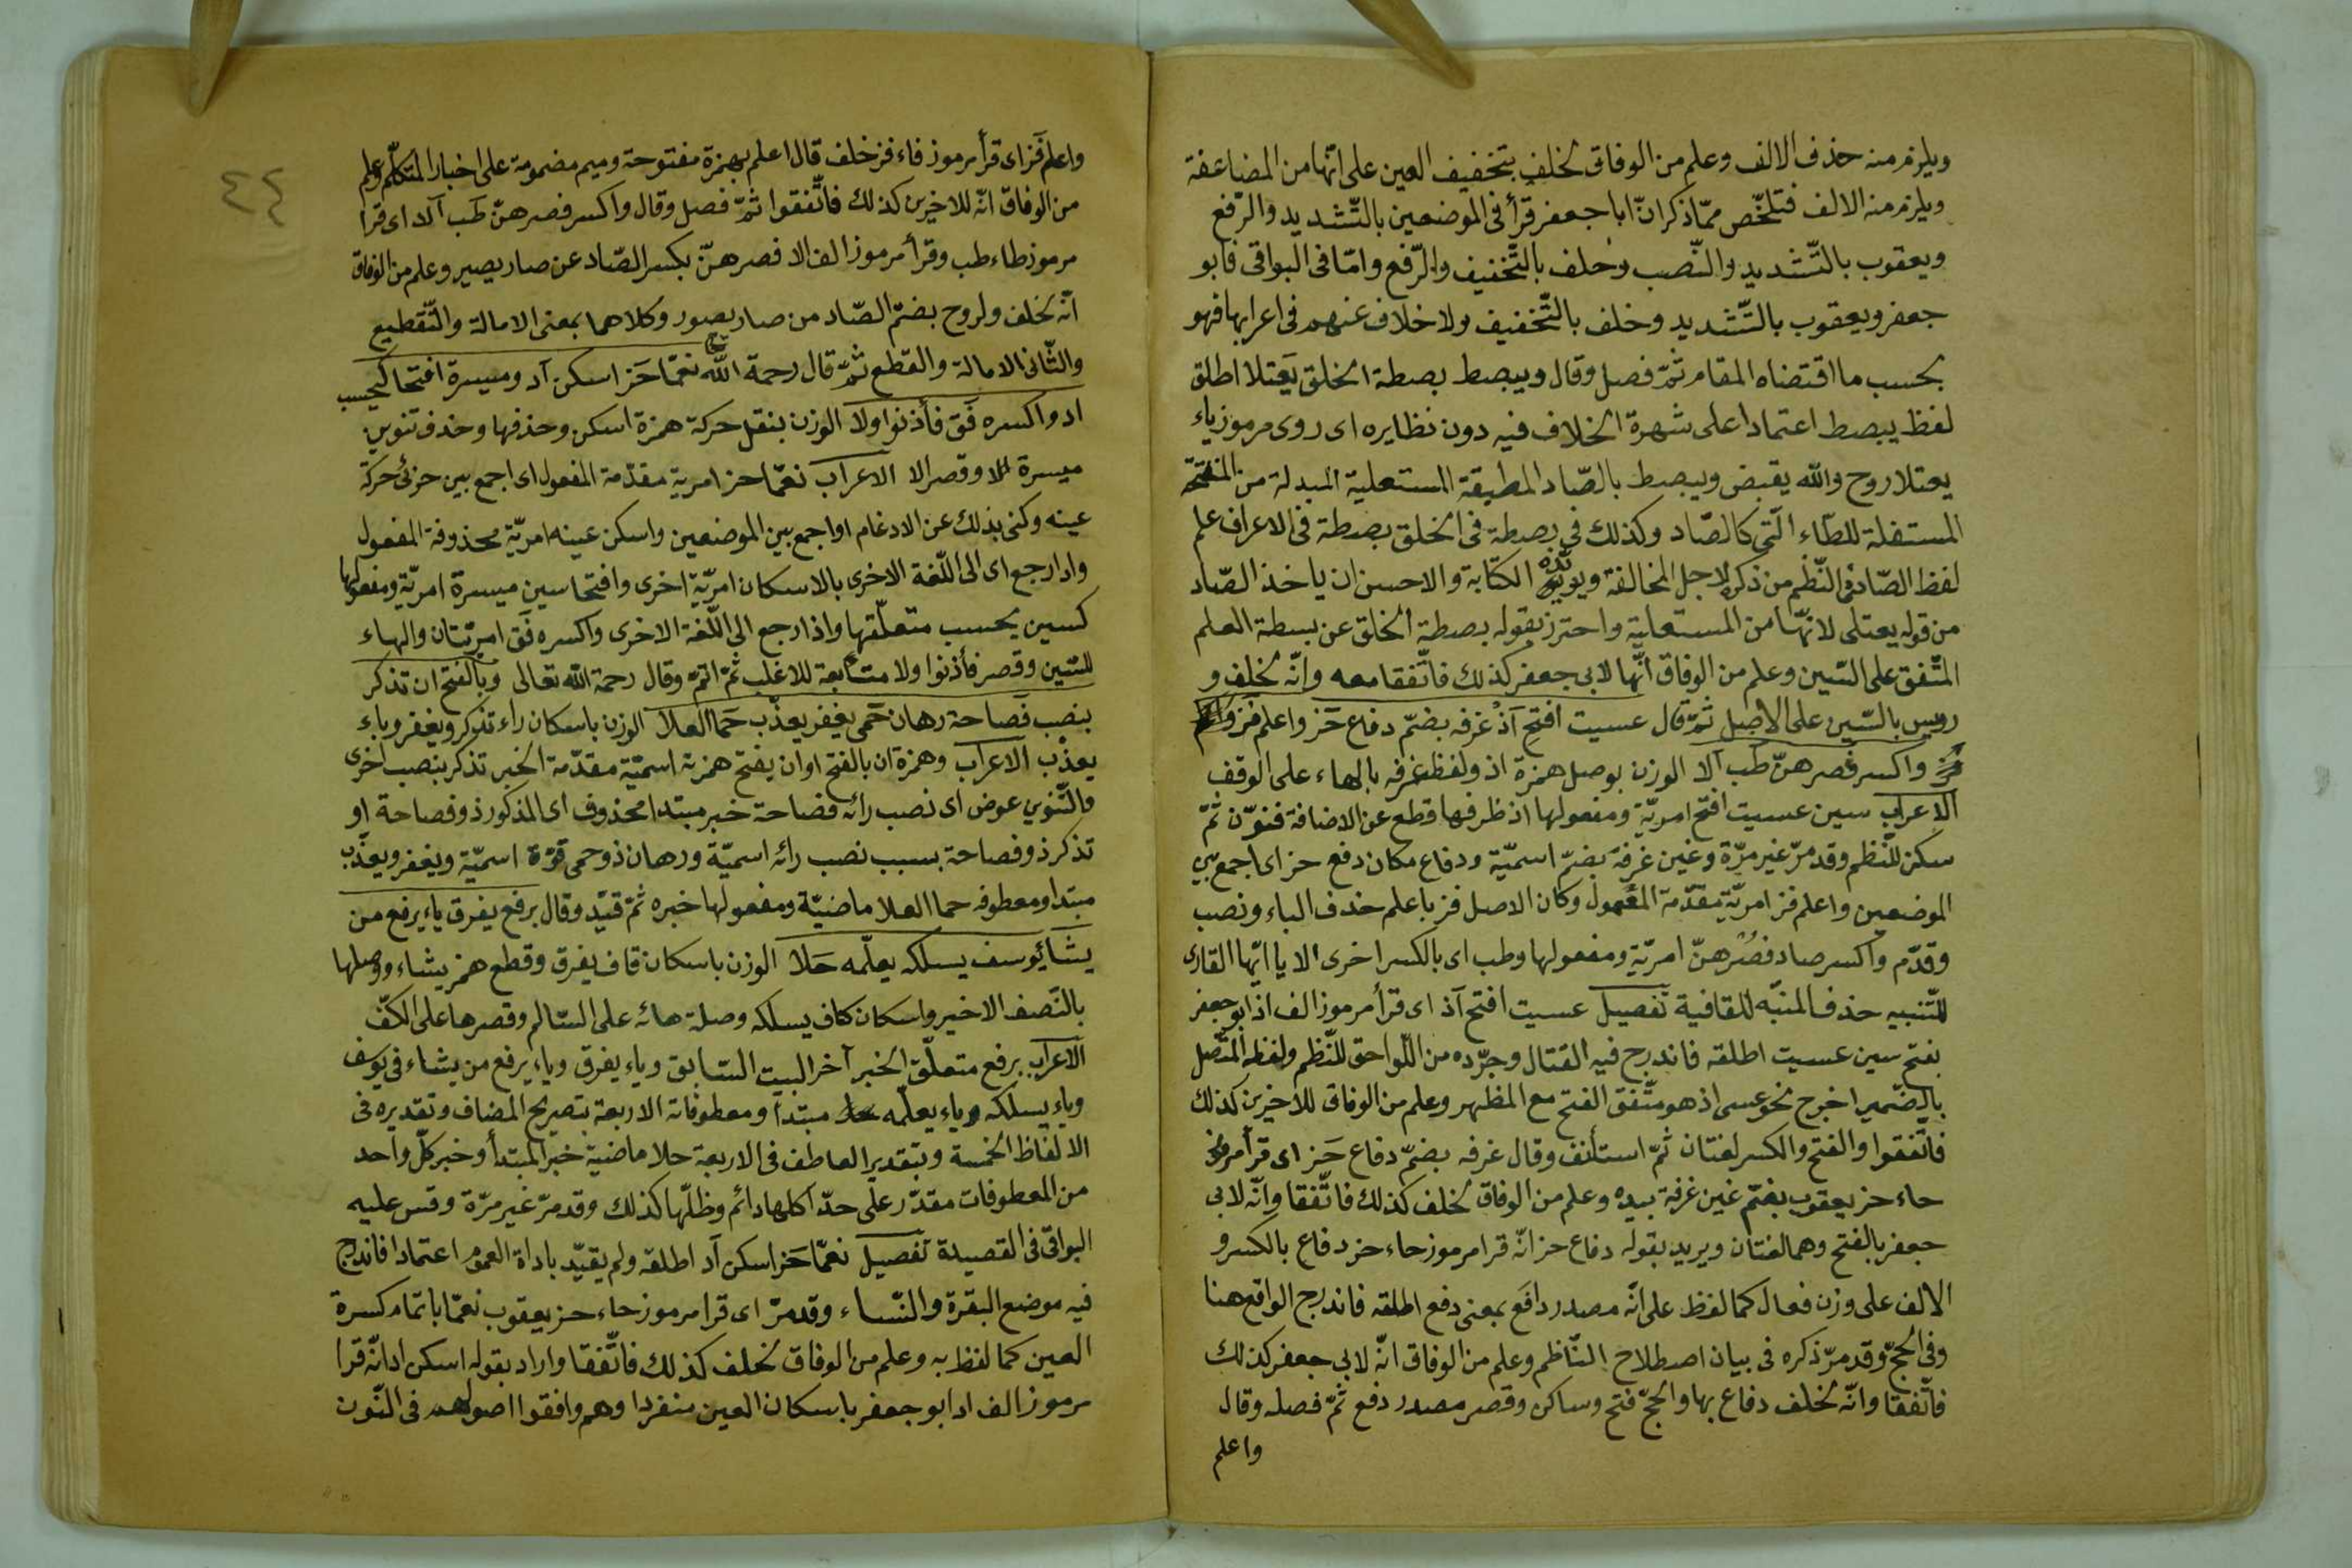 ويلزم منه حذف الالف وعلم من الوفاق لخلف بتخفيف العين على انّها من المضاعفة
ويلزم منه الالف فتلخّص ممّا ذكر انّ ابا جعفر قرأ فى الموضعين بالتّشديد والرّفع
ويعقوب بالتّشديد والنّصب وخلف بالتّخفيف والرّفع وامّا فى البواقى فابو
جعفر ويعقوب بالتّشديد وخلف بالتّخفيف ولا خلاف عنهم فى اعرابها فهو
بحسب ما اقتضاه المقام ثمّ فصل وقال ويبصط بصطة الخلق يَعتلا اطلق
لفظ يبصط اعتمادا على شهرة الخلاف فيه دون نظايره اى روى مرموز ياء
يعتلا روح والله يقبض ويبصط بالصّاد المطبقة المستعلية المبدلة من المنفتحة
المستفلة للطّاء الّتى كالصّاد وكذلك فى بصطة فى الخلق بصطة فى الاعراف علم
لفظ الصّاد فى النّظم من ذكره لاجل المخالفة ويويّده الكتابة والاحسن ان ياخذ الصّاد
من قوله يعتلى لانّها من المستعلية واحترز بقوله بصطة الخلق عن بسطة العلم
المتّفق على السّين وعلم من الوفاق انّها لابى جعفر كذلك فاتّفقا معه وانّه لخلف و
رويس بالسّين على الاصل ثمّ قال عسيت افتح آذ غرفه بضمّ دفاع حَز واعلم فز
واكسر فصرهنّ طب آلا الوزن بوصل همزة اذ ولفظ غرفه بالهاء على الوقف
الاعراب سين عسيت افتح امريّة ومفعولها اذ ظرفها قطع عن الاضافة فنوّن ثمّ
سكن للنّظم وقد مرّ غير مرّة وغين غرفة بضمّ اسميّة ودفاع مكان دفع حز اى اجمع بين
الموضعين واعلم فز امريّة مقدّمة المفعول وكان الاصل فز باعلم حذف الباء ونصب
وقدّم واكسر صاد فصُرهنّ امريّة ومفعولها وطب اى بالكسر اخرى الا يا ايّها القارى
للتّنبيه حذف المنبّه للقافية تفصيل عسيت افتح آذ اى قرأ مرموز الف اذ ابو جعفر
بفتح سين عسيت اطلقه فاندرج فيه القتال وجرّده من اللّواحق للنّظم ولفظه المتّصل
بالضّمير اخرج نحو عسى اذ هو متّفق الفتح مع المظهر وعلم من الوفاق للاخرين كذلك
فاتّفقوا والفتح والكسر لغتان ثمّ استأنف وقال غرفه بضمّ دفاع حَز اى قرأ مرموز
حاء حز يعقوب بضمّ غين غرفة بيده وعلم من الوفاق لخلف كذلك فاتّفقا وانّه لابى
جعفر بالفتح وهما لغتان ويريد بقوله دفاع حز انّه قرا مرموز حاء حز دفاع بالكسر و
الالف على وزن فعال كما لفظ على انّه مصدر دافع بمعنى دفع اطلقه فاندرج الواقع هنا
وفى الحجّ وقد مرّ ذكره فى بيان اصطلاح النّاظم وعلم من الوفاق انّه لابى جعفر كذلك
فاتّفقا وانّه لخلف دفاع بها والحجّ فتح وساكن وقصر مصدر دفع ثمّ فصله وقال
واعلم
٤٤
واعلم فَز اى قرأ مرموز فاء فز خلف قال اعلم بهمزة مفتوحة وميم مضمومة على اخبار المتكلّم وعلم
من الوفاق انّه للاخرين كذلك فاتّفقوا ثمّ فصل وقال واكسر فصرهنّ طَب آلا اى قرا
مرموز طاء طب وقرأ مرموز الف الا فصرهنّ بكسر الصّاد عن صار يصير وعلم من الوفاق
انّه لخلف ولروح بضمّ الصّاد من صار يصور وكلاهما بمعنى الامالة والتّقطيع
والثّانى الامالة والقطع ثمّ قال رحمة الله نعمّا حَز اسكن آد وميسرة افتحا كيحسب
اد واكسره فَق فأذنوا ولا الوزن بنقل حركة همزة اسكن وحذفها وحذف تنوين
ميسرة للا وقصر الا الاعراب نعمّا حز امرية مقدّمة المفعول اى اجمع بين جزئى حركة
عينه وكنى بذلك عن الادغام او اجمع بين الموضعين واسكن عينه امريّة محذوفة المفعول
واد ارجع اى الى اللّغة الاخرى بالاسكان امريّة اخرى وافتحا سين ميسرة امريّة ومفعولها
كسين يحسب متعلّقها واذ ارجع الى اللّغة الاخرى واكسره فَق امريّتان والهاء
للسّين وقصر فأذنوا ولا متابعة للاغلب ثمّ اتمّ وقال رحمة الله تعالى وبالفتح ان تذكر
بنصب فَصاحة رهان حَمى يغفر يعذّب حَما العلا الوزن باسكان راء تذكر ويغفر وباء
يعذّب الاعراب وهمزة ان بالفتح او ان يفتح همزته اسميّة مقدّمة الخبر تذكر بنصب اخرى
والتّنوين عوض اى نصب رائه فصاحة خبر مبتدا محذوف اى المذكور ذو فصاحة او
تذكر ذو فصاحة بسبب نصب رائه اسميّة ورهان ذو حمى قوّة اسميّة ويغفر ويعذّب
مبتدا ومعطوفه حما العلا ماضيّة ومفعولها خبره ثمّ قيّد وقال برفع يفرق ياء يرفع من
يشاء يوسف يسلكه يعلّمه حَلا الوزن باسكان قاف يفرق وقطع همز يشاء ووصلها
بالنّصف الاخير واسكان كاف يسلكه وصلة هائه على السّالم وقصرها على الكفّ
الاعراب برفع متعلّق الخبر آخر البيت السّابق وياء يفرق وياء يرفع من يشاء فى يوسف
وياء يسلكه وياء يعلّمه مبتدأ ومعطوفاته الاربعة بتصريح المضاف وتقديره فى
الالفاظ الخمسة وبتقدير العاطف فى الاربعة حلا ماضية خبر المبتدأ وخبر كلّ واحد
من المعطوفات مقدّر على حدّ اكلها دائم وظلّها كذلك وقد مرّ غير مرّة وقس عليه
البواقى فى القصيدة تفصيل نعمّا حَز اسكن آد اطلقه ولم يقيّد باداة العموم اعتمادا فاندرج
فيه موضع البقرة والنّساء وقد مرّ اى قرا مرموز حاء حز يعقوب نعمّا باتمام كسرة
العين كما لفظ به وعلم من الوفاق لخلف كذلك فاتّفقا واراد بقوله اسكن اد انّه قرا
مرموز الف اد ابو جعفر باسكان العين منفردا وهم وافقوا اصولهم فى النّون